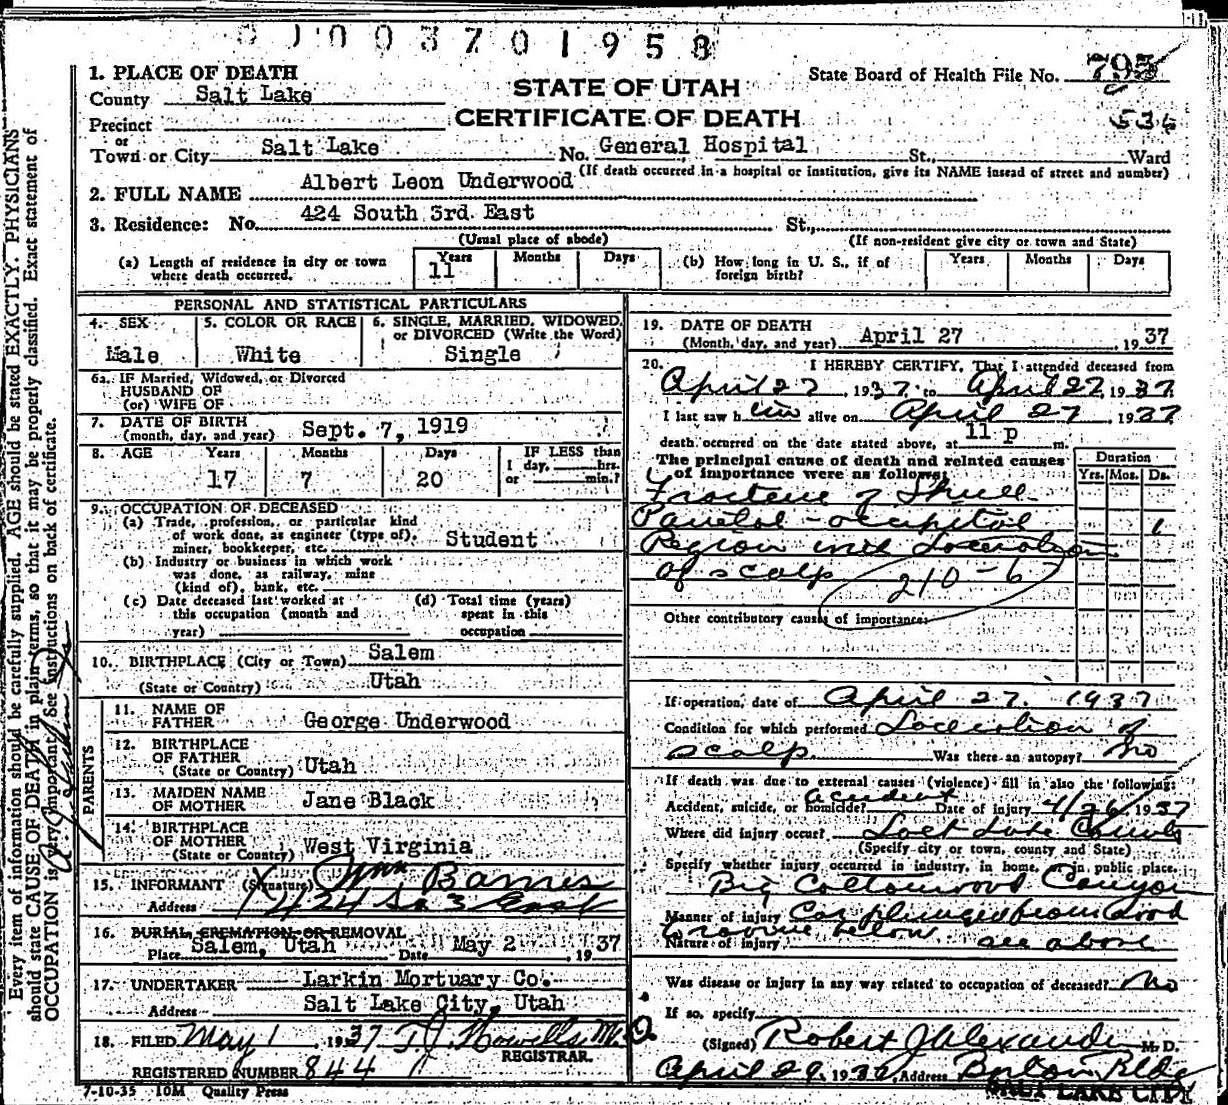 0 1 0 0 3 7 0 1 9 5 8
1. PLACE OF DEATH
County Salt Lake
Precinct
or
Town or City Salt Lake
STATE OF UTAH
CERTIFICATE OF DEATH
State Board of Health File No. 795
536
No. General Hospital St., Ward
(If death occurred in a hospital or institution, give its NAME insead of street and number)
2. FULL NAME Albert Leon Underwood
3. Residence: No. 424 South 3rd East St.,
(Usual place of abode)
(If non-resident give city or town and State)
(a) Length of residence in city or town where death occurred. Years 11 Months Days
(b) How long in U. S., if of foreign birth? Years Months Days
PERSONAL AND STATISTICAL PARTICULARS
4. SEX Male
5. COLOR OR RACE White
6. SINGLE, MARRIED, WIDOWED, or DIVORCED (Write the Word) Single
6a. IF Married, Widowed, or Divorced
HUSBAND OF
(or) WIFE OF
7. DATE OF BIRTH
(month, day, and year) Sept. 7, 1919
8. AGE Years 17 Months 7 Days 20
IF LESS than
1 day, hrs.
or min.?
9. OCCUPATION OF DECEASED
(a) Trade, profession, or particular kind
of work done, as engineer (type of),
miner, bookkeeper, etc. Student
(b) Industry or business in which work
was done, as railway, mine
(kind of), bank, etc.
(c) Date deceased last worked at
this occupation (month and
year)
(d) Total time (years)
spent in this
occupation
10. BIRTHPLACE (City or Town) Salem
(State or Country) Utah
PARENTS
11. NAME OF
FATHER George Underwood
12. BIRTHPLACE
OF FATHER
(State or Country) Utah
13. MAIDEN NAME
OF MOTHER Jane Black
14. BIRTHPLACE
OF MOTHER
(State or Country) West Virginia
15. INFORMANT (Signature) Wm Barnes
Address 424 So 3 East
16. BURIAL, CREMATION OR REMOVAL
Place Salem, Utah Date May 2 1937
17. UNDERTAKER Larkin Mortuary Co.
Address Salt Lake City, Utah
18. FILED May 1 1937 T. J. Howells M.D.
REGISTRAR.
REGISTERED NUMBER 844
7-10-35 10M Quality Press
19. DATE OF DEATH
(Month, day, and year) April 27 1937
20. I HEREBY CERTIFY, That I attended deceased from
April 27, 1937, to April 27, 1937.
I last saw h im alive on April 27 1937
death occurred on the date stated above, at 11 p m.
The principal cause of death and related causes
of importance were as follows:
Duration
Yrs. Mos. Ds.
Fracture of Skull
Parietal - occipital 1
Region and Laceration
of scalp 210-6
Other contributory causes of importance:
If operation, date of April 27. 1937
Condition for which performed Laceration of
scalp Was there an autopsy? No
If death was due to external causes (violence) fill in also the following:
Accident, suicide, or homicide? accident Date of injury 4/26/1937
Where did injury occur? Salt Lake County
(Specify city or town, county and State)
Specify whether injury occurred in industry, in home, in public place.
Big Cottonwood Canyon
Manner of injury Car plunged from road
to ravine below
Nature of injury see above
Was disease or injury in any way related to occupation of deceased? No
If so, specify
(Signed) Robert J Alexander M. D.
April 29, 1937, Address Boston Bldg
SALT LAKE CITY
Every item of information should be carefully supplied. AGE should be stated EXACTLY. PHYSICIANS
should state CAUSE OF DEATH in plain terms, so that it may be properly classified. Exact statement of
OCCUPATION is very important. See instructions on back of certificate.